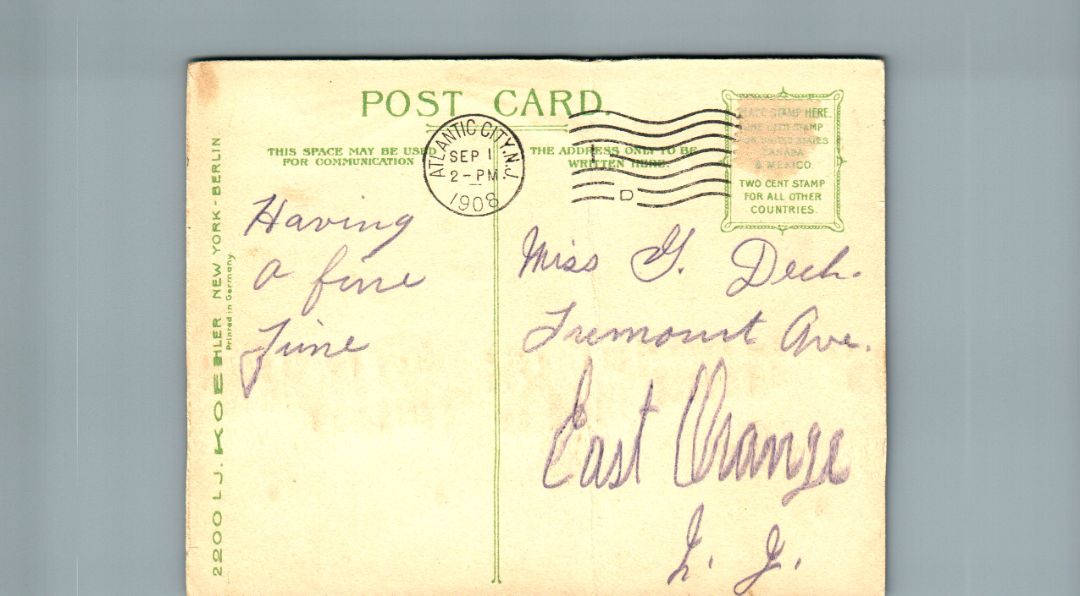 POST CARD.
THIS SPACE MAY BE USED
FOR COMMUNICATION
THE ADDRESS ONLY TO BE
WRITTEN HERE.
ATLANTIC CITY, N.J.
SEP 1
2-PM
1908
D
PLACE STAMP HERE.
ONE CENT STAMP
FOR UNITED STATES
CANADA
& MEXICO
TWO CENT STAMP
FOR ALL OTHER
COUNTRIES.
Having
a fine
Time
Miss G. Dech.
Tremount Ave.
East Orange
N. J.
2200 L.J. KOEHLER NEW YORK - BERLIN
Printed in Germany.